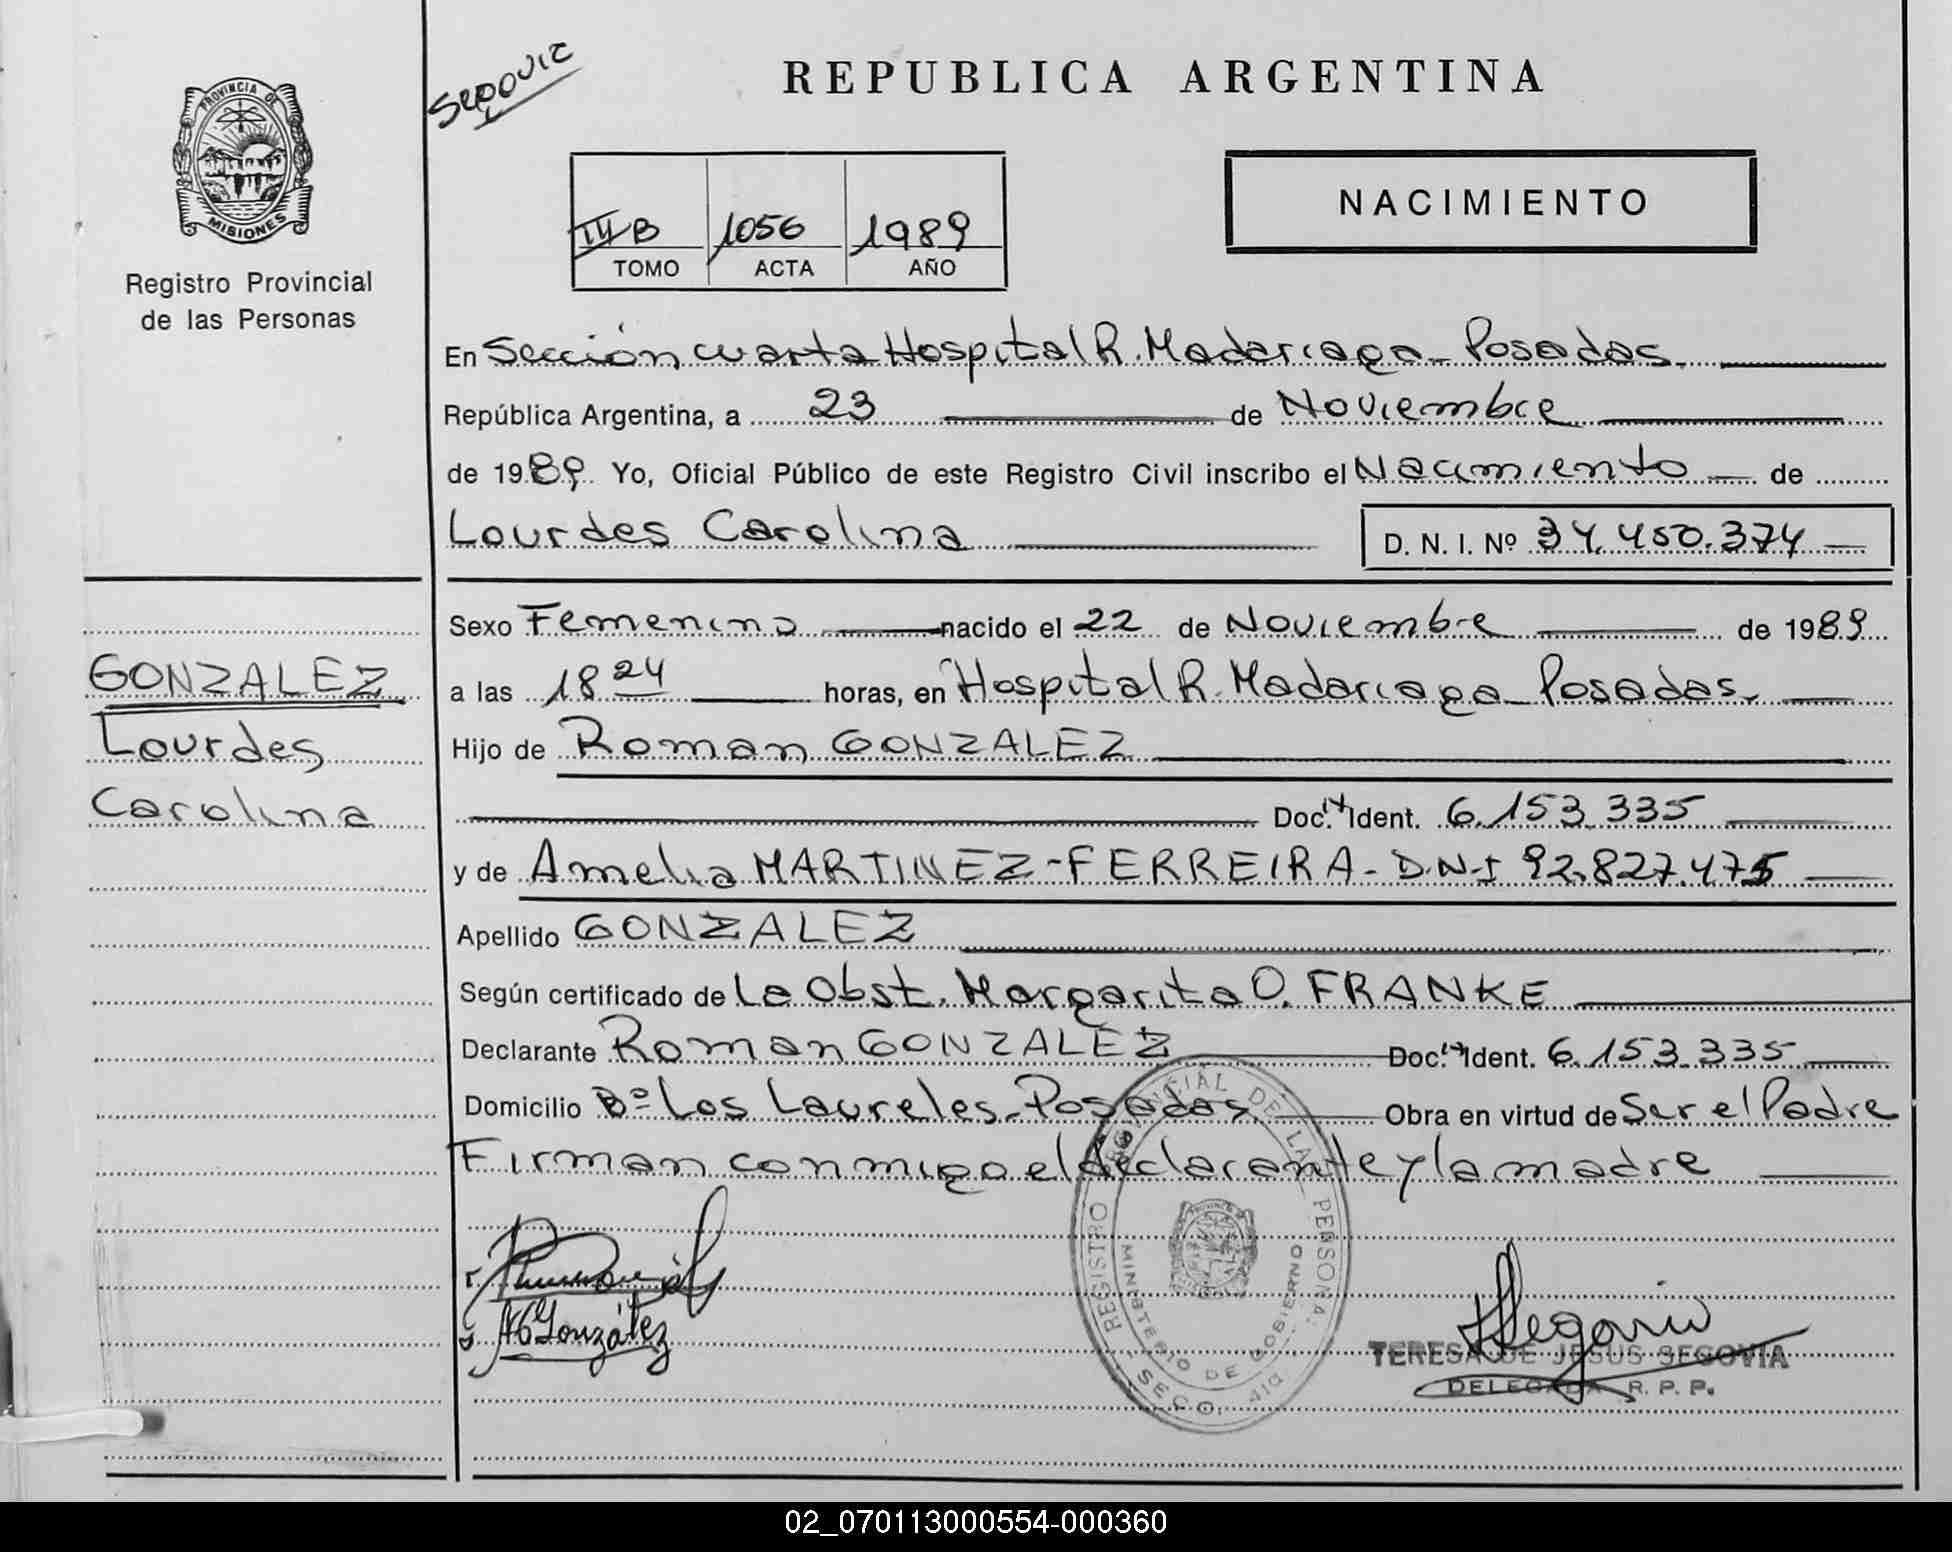 Segovia
REPUBLICA ARGENTINA
PROVINCIA DE
MISIONES
Registro Provincial
de las Personas
NACIMIENTO
III B 1056 1989
TOMO ACTA AÑO
En Sección cuarta Hospital R. Madariaga - Posadas.
República Argentina, a 23 de Noviembre
de 1989. Yo, Oficial Público de este Registro Civil inscribo el Nacimiento de
Lourdes Carolina D. N. I. Nº 34.450.374
Sexo Femenino nacido el 22 de Noviembre de 1989
a las 18 24 horas, en Hospital R. Madariaga - Posadas.
Hijo de Roman GONZALEZ
Doc. Ident. 6.153.335
y de Amelia MARTINEZ-FERREIRA - D.N.I 92.827.475
Apellido GONZALEZ
Según certificado de La Obst. Margarita O. FRANKE
Declarante Roman GONZALEZ Doc. Ident. 6.153.335
Domicilio Bº Los Laureles - Posadas. Obra en virtud de Ser el Padre
Firman conmigo el declarante y la madre
GONZALEZ
Lourdes
Carolina
González
REGISTRO PROVINCIAL DE LAS PERSONAS
MINISTERIO DE GOBIERNO
SECC. 4ta
TERESA DE JESUS SEGOVIA
DELEGADA R. P. P.
02_070113000554-000360